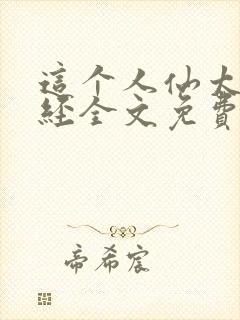 這个人仙太
經全文免費
帝希宸